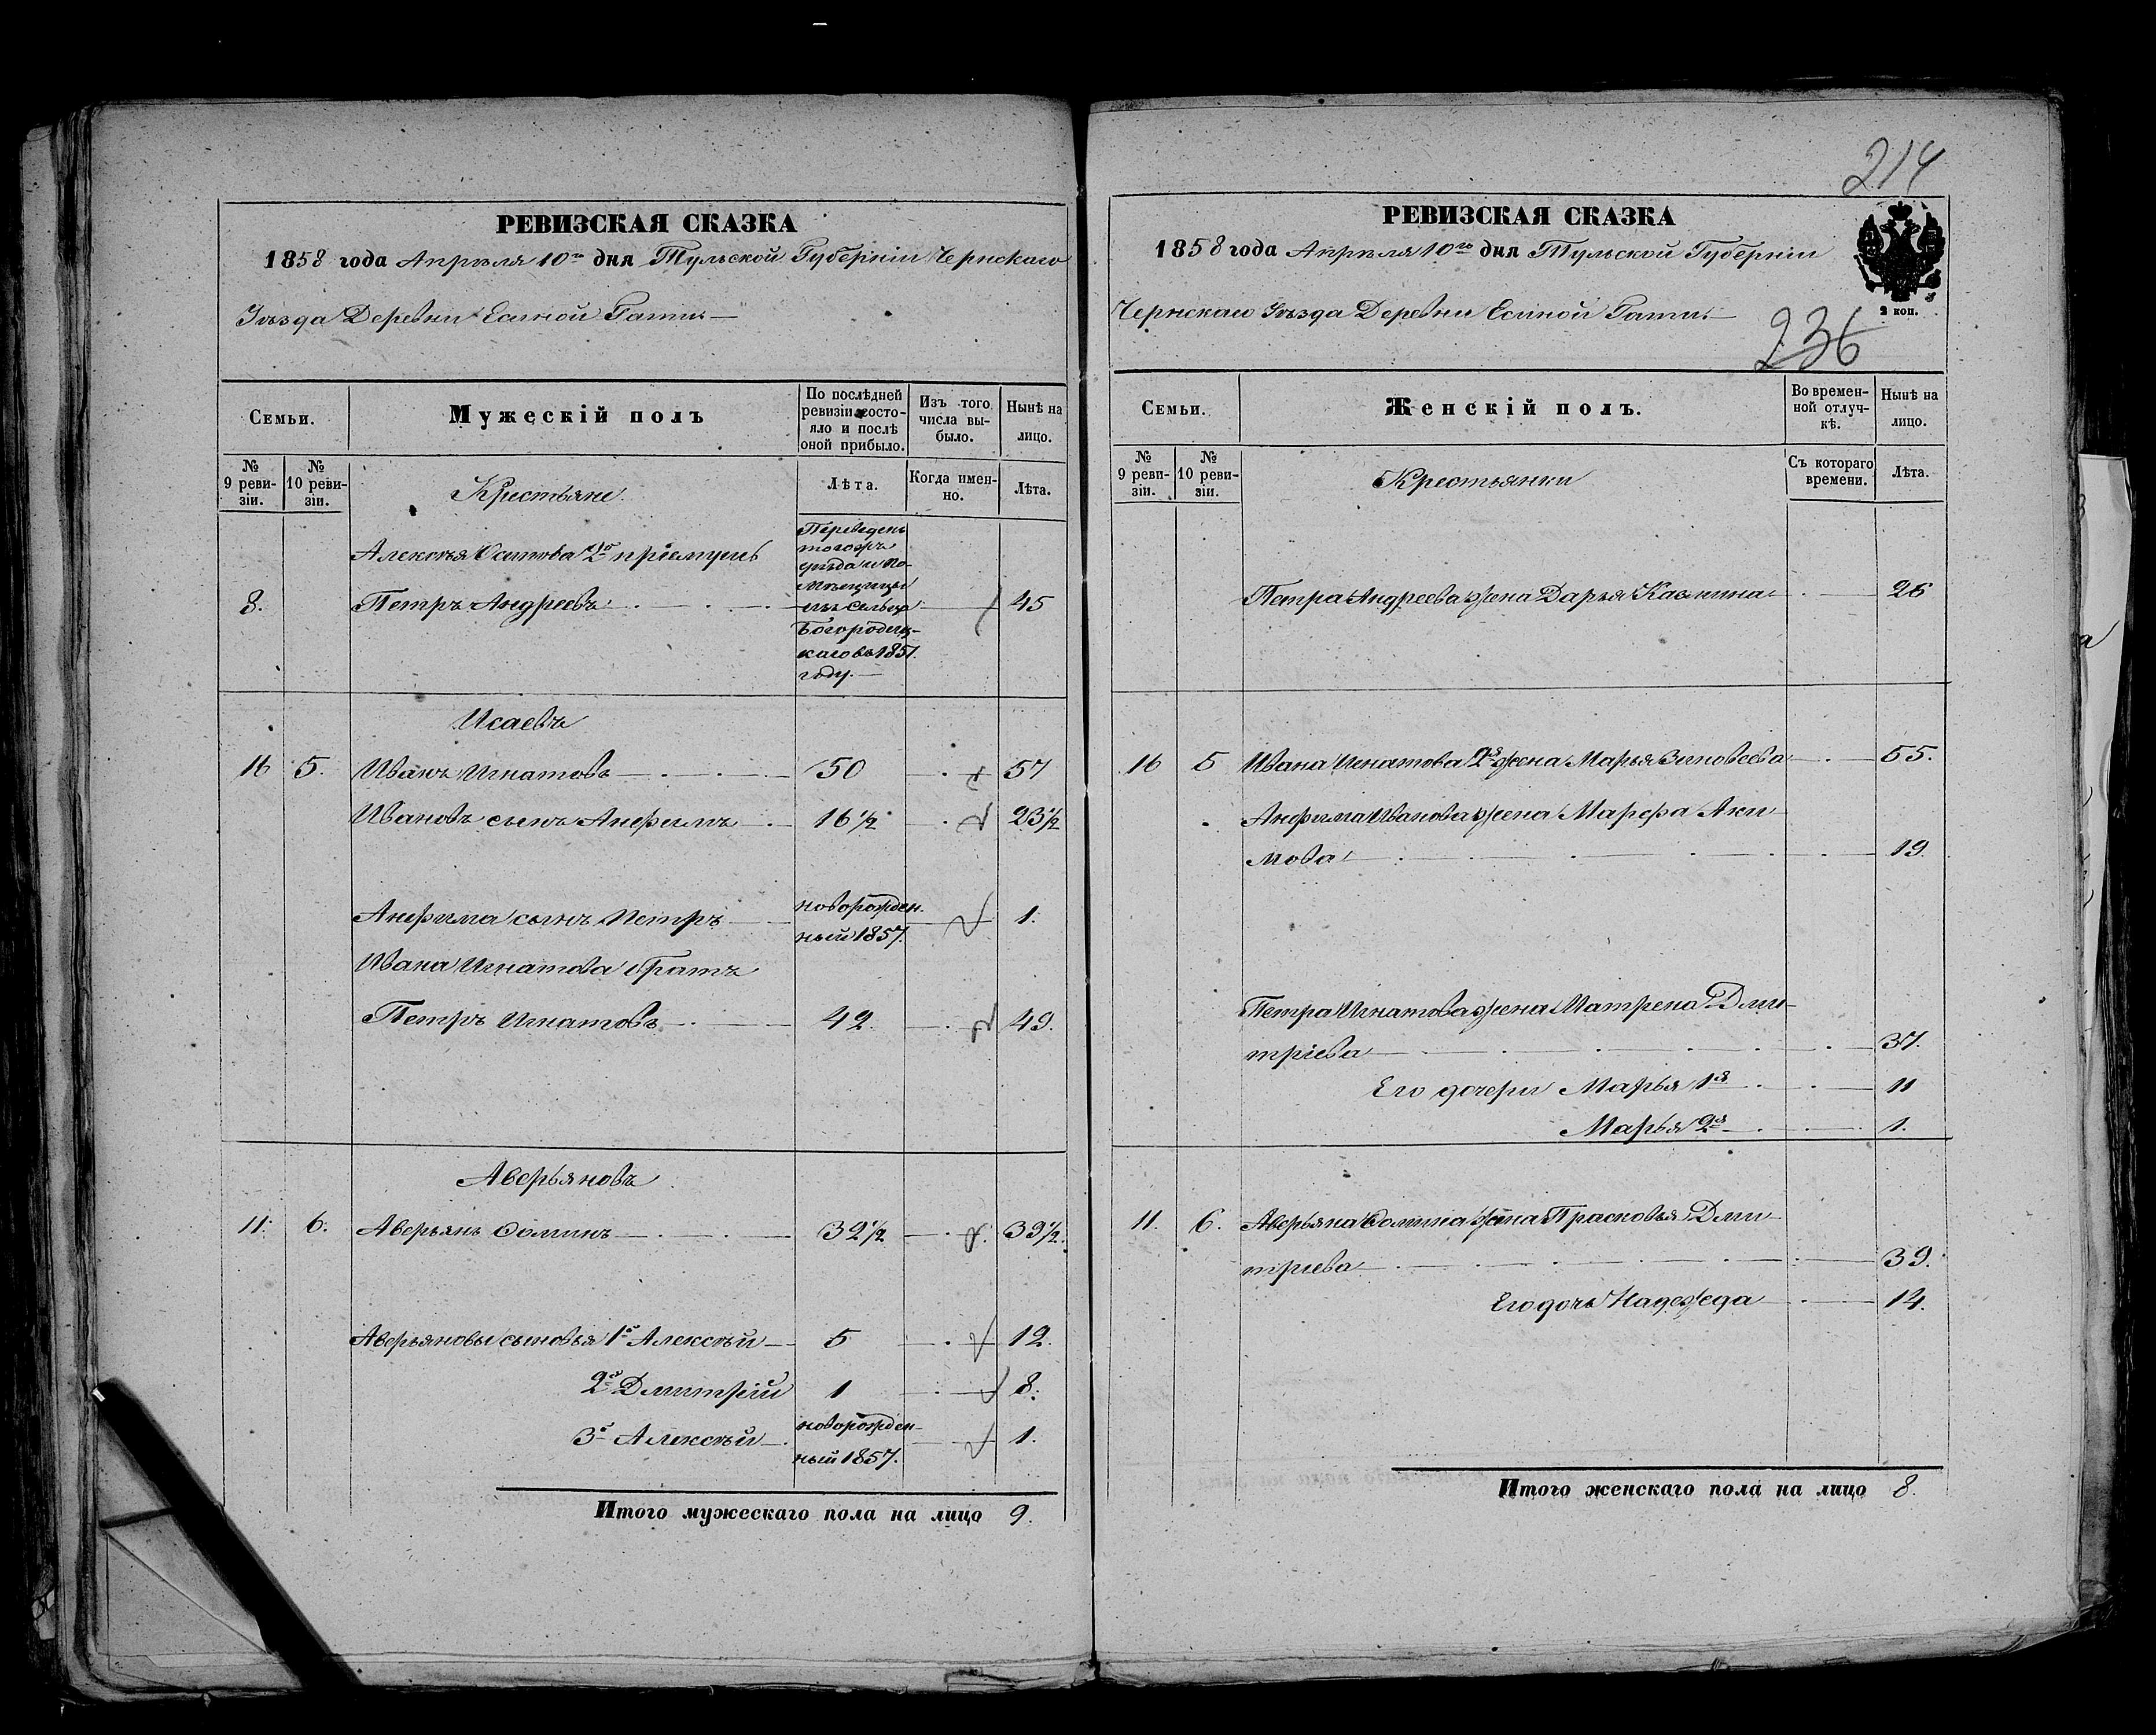 РЕВИЗСКАЯ СКАЗКА
1858 года Апрѣля 10го дня Тульской Губерніи Чернскаго
Уѣзда Деревни Есиной Гати
Семьи.
Мужескій полъ
По послѣдней ревизіи состояло и послѣ оной прибыло.
Изъ того числа выбыло.
Нынѣ на лицо.
№ 9 ревизіи.
№ 10 ревизіи.
Крестьяне
Лѣта.
Когда именно.
Лѣта.
Алексѣя Осипова 2й пріемушъ
8. Петръ Андреевъ 45
Переведенъ
тогожъ
уѣзда и По-
мѣщицы
изъ Сельца
Богородец-
каго въ 1851.
году.
Исаевъ
16 5. Иванъ Игнатовъ 50 57
Ивановъ сынъ Анфимъ 16 1/2 23 1/2
Анфима сынъ Петръ новорожден-
ный 1857. 1.
Ивана Игнатова братъ
Петръ Игнатовъ 42. 49.
Аверьяновъ
11. 6. Аверьянъ Фоминъ 32 1/2 39 1/2.
Аверьяновы сыновья 1й Алексѣй 5 12.
2й Дмитрій 1 8.
3й Алексѣй новорожден-
ный 1857. 1.
Итого мужескаго пола на лицо 9.
214
РЕВИЗСКАЯ СКАЗКА
1858 года Апрѣля 10го дня Тульской Губерніи
Чернскаго Уѣзда Деревни Есиной Гати
2 коп.
236
Семьи.
Женскій полъ.
Во временной отлучкѣ.
Нынѣ на лицо.
№ 9 ревизіи.
№ 10 ревизіи.
Крестьянки
Съ котораго времени.
Лѣта.
Петра Андреева жена Дарья 26
16 5 Ивана Игнатова жена Марья Зиновеева 55.
Анфима Иванова жена Марфа Аки-
мова 19.
Петра Игнатова жена Матрена Дми-
тріева 37.
Его дочери Марья 1я 11
Марья 2я 1.
11. 6. Аверьяна Фомина жена Прасковья Дми-
тріева 39.
Его дочь Надежда 14.
Итого женскаго пола на лицо 8.